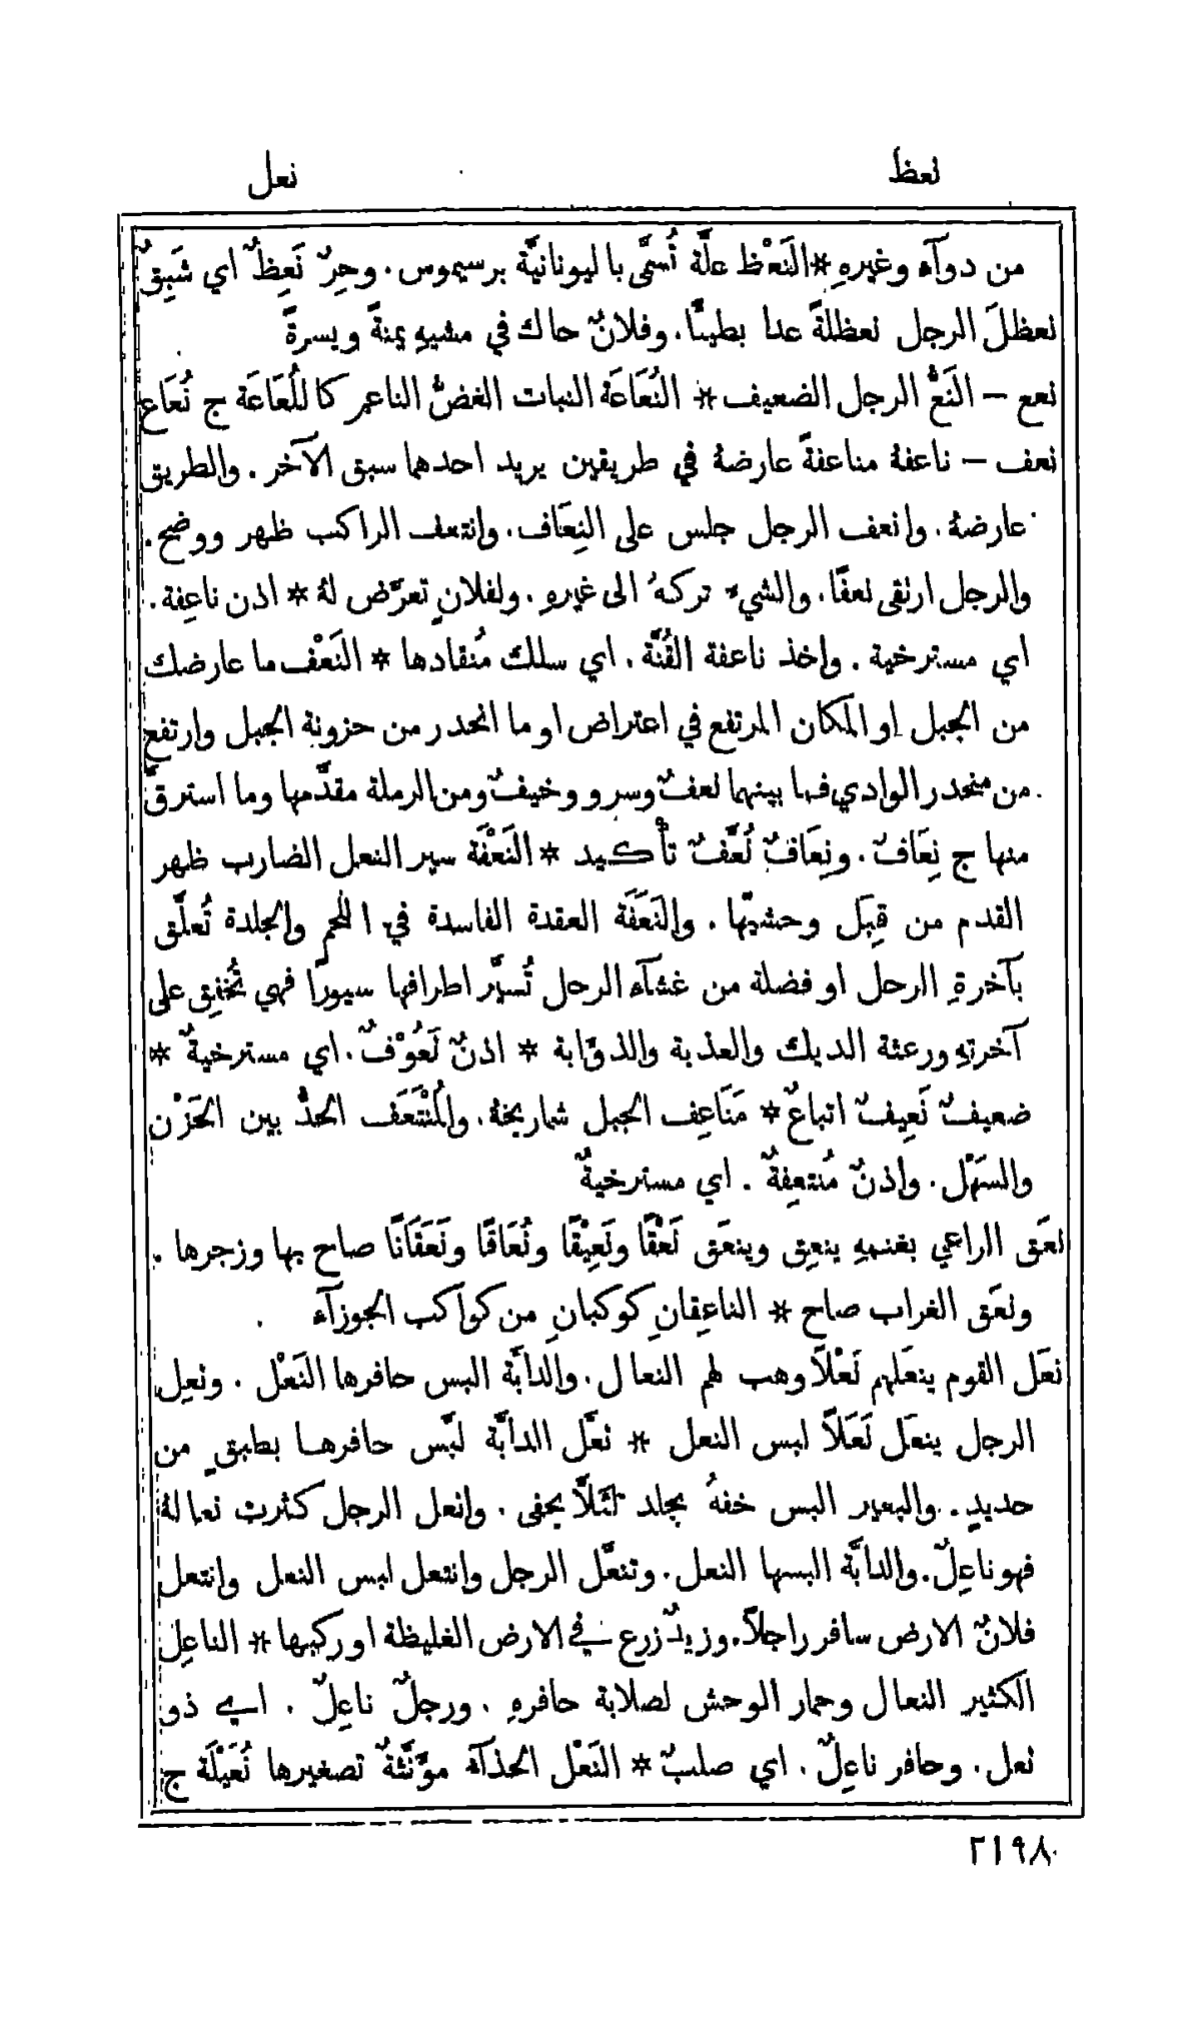 نعظ
نعل
من دوآء وغيرهِ * النَعْظ علَّة تُسمَّى باليونانيَّة برسيموس. وحِرٌ نَعِظٌ اي شَبِقٌ
نعظلَ الرجل نعظلةً عدا بطيئًا. وفلانٌ حاك في مشيهِ يمنةً ويسرةً
نعع – النَعُّ الرجل الضعيف * النُعَاعَة النبات الغضُّ الناعم كاللُعَاعَة ج نُعَاع
نعف – ناعفهُ مناعفةً عارضهُ في طريقين يريد احدهما سبق الآخر. والطريق
عارضهُ. وانعف الرجل جلس على النِعَاف. وانتعف الراكب ظهر ووضح.
والرجل ارتقى نعفًا. والشيءَ تركهُ الى غيرهِ. ولفلانٍ تعرَّض لهُ * اذن ناعِفة.
اي مسترخية. واخذ ناعفة القُنَّة. اي سلك مُنقادها * النَعْف ما عارضك
من الجبل او المكان المرتفع في اعتراض او ما انحدر من حزونة الجبل وارتفع
من منحدر الوادي فما بينهما نعفٌ وسرو وخيفٌ ومن الرملة مقدَّمها وما استرقَّ
منها ج نِعَافٌ. ونِعَافٌ نُعَّفٌ تأكيد * النَعْفَة سير النعل الضارب ظهر
القدم من قِبَل وحشيّها. والنَعَفَة العقدة الفاسدة في اللحم والجلدة تُعلَّق
بآخرةِ الرحل او فضلة من غشآء الرحل تُسيَّر اطرافها سيورًا فهي تُخفق على
آخرتهِ ورعثة الديك والعذبة والذؤابة * اذنٌ نَعُوْفٌ. اي مسترخيةٌ *
ضعيفٌ نَعِيفٌ اتباعٌ * مَنَاعِف الجبل شماريخهُ. والمُنْتَعَف الحدُّ بين الحَزْن
والسَهْل. واذنٌ مُنتعِفةٌ. اي مسترخيةٌ
نعَق الراعي بغنمهِ ينعِق وينعَق نَعْقًا ونَعِيْقًا ونُعَاقًا ونَعَقَانًا صاح بها وزجرها.
ونعَق الغراب صاح * الناعِقانِ كوكبانِ من كواكب الجوزآء
نعَل القوم ينعَلهم نَعْلًا وهب لهم النعال. والدابَّة البس حافرها النَعْل. ونعِل
الرجل ينعَل نَعَلًا لبس النعل * نعَّل الدابَّة لبَّس حافرها بطبقٍ من
حديدٍ. والبعير البس خفهُ بجلد لئلَّا يحفى. وانعل الرجل كثرت نعالهُ
فهو ناعِلٌ. والدابَّة البسها النعل. وتنعَّل الرجل وانتعل لبس النعل وانتعل
فلانٌ الارض سافر راجلًا. وزيدٌ زرع في الارض الغليظة او ركبها * الناعِل
الكثير النعال وحمار الوحش لصلابة حافرهِ. ورجلٌ ناعِلٌ. اي ذو
نعل. وحافر ناعِلٌ. اي صلبٌ * النَعْل الحذآء موَّنَّثةٌ تصغيرها نُعَيْلَة ج
٢١٩٨